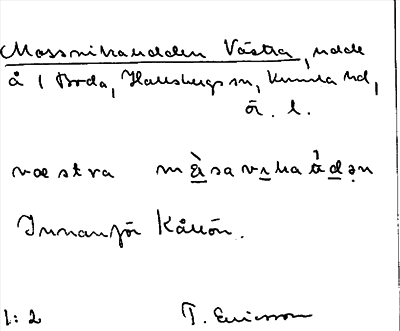 Mossvikaudden Västra, udde
å 1 Boda, Hallsbergs sn, Kumla hd,
ö. l.
væstra måsavikaådən
Innanför Kållön.
1:2 T. Ericsson